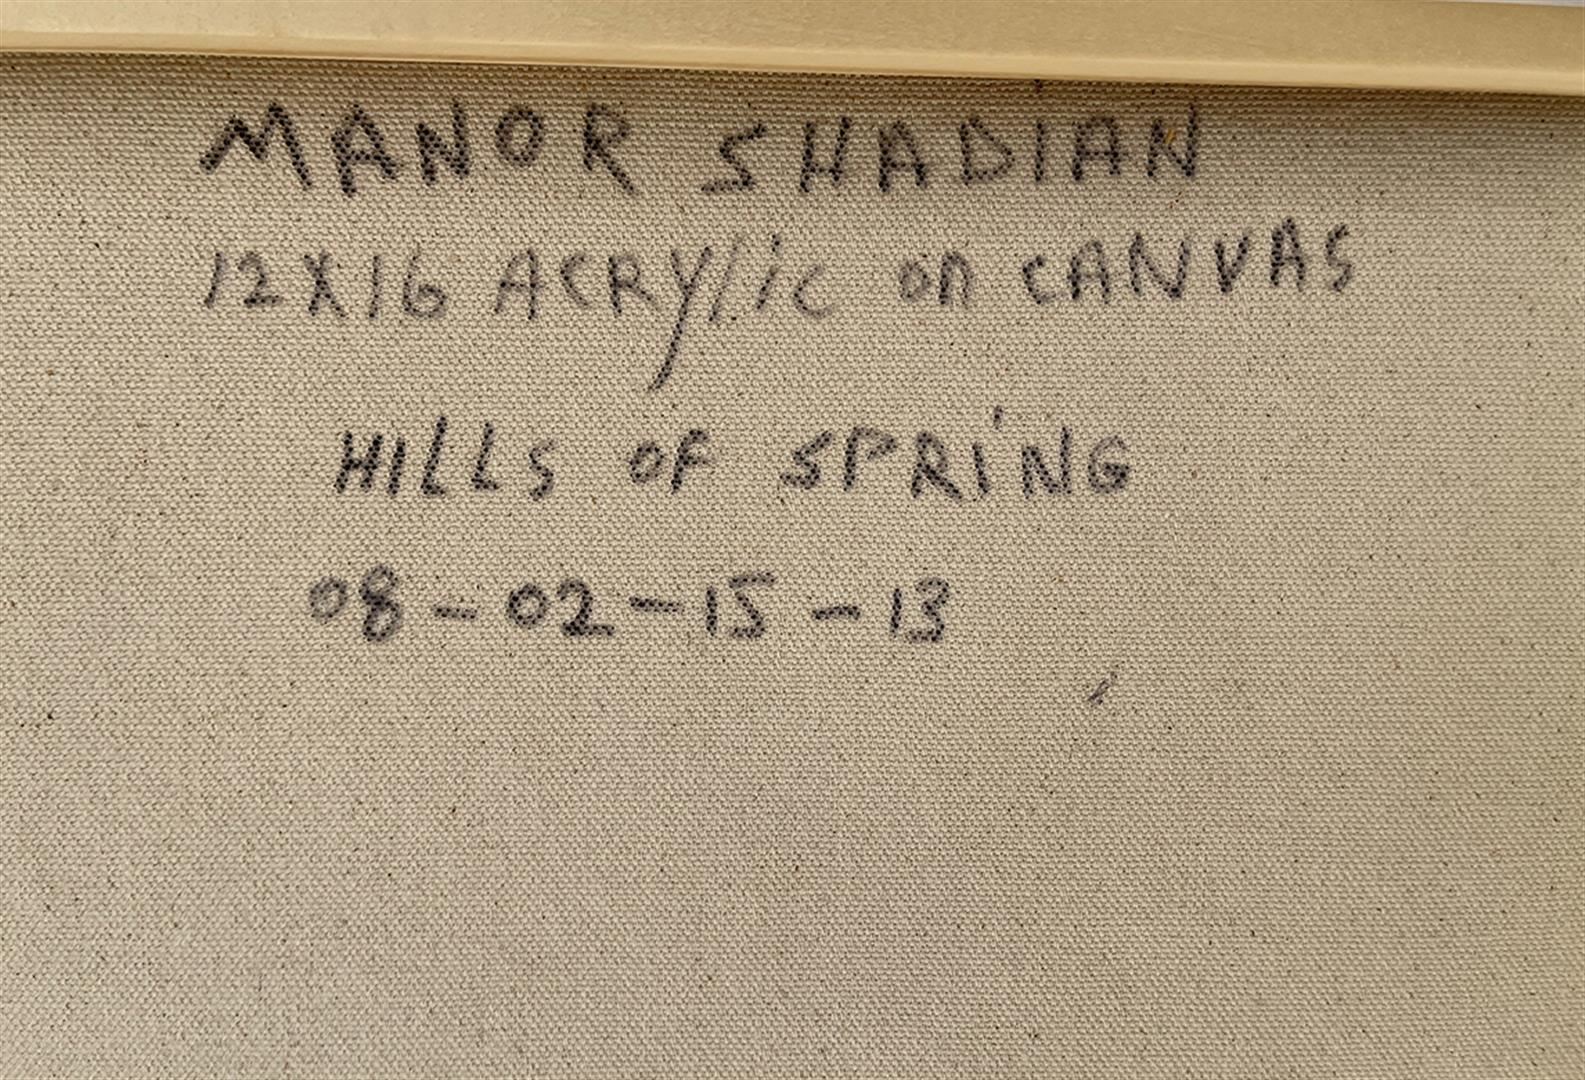 MANOR SHADIAN
12X16 ACRYlic on CANVAS
HILLS OF SPRiNG
08-02-15-13